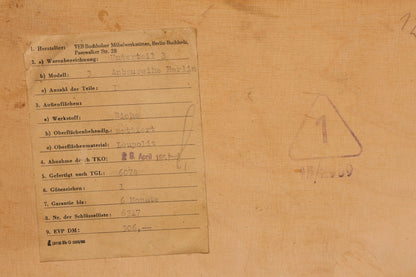 1. Hersteller: VEB Buchholzer Möbelwerkstätten, Berlin-Buchholz,
Pasewalker Str. 28
2. a) Warenbezeichnung: Unterteil 2
b) Modell: 3 Anbaureihe Berlin
c) Anzahl der Teile: 1
3. Außenflächen:
a) Werkstoff: Eiche
b) Oberflächenbehandlg.: Mattiert
c) Oberflächenmaterial:
4. Abnahme durch TKO: 28. April
5. Gefertigt nach TGL:
6. Güteziichen: 1
7. Garantie bis: 6 Monate
8. Nr. der Schlüsselliste: 6347
9. EVP DM: 206,—
1